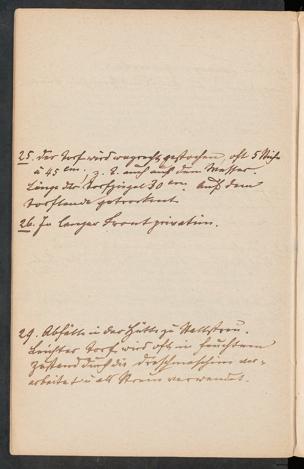 25. Der Torf wird wagrecht gestochen, oft 5 Stiche
à 45 cm, z. T. auch aus dem Wasser.
Länge der Torfziegel 30 cm. Auf dem
Torflande getrocknet.
26. In langer Front
29. Abfälle in der Hütte zu Stallstreu.
Leichter Torf wird oft in feuchtem
Zustand durch die Dreschmaschine ver-
arbeitet u. als Streu verwendet.